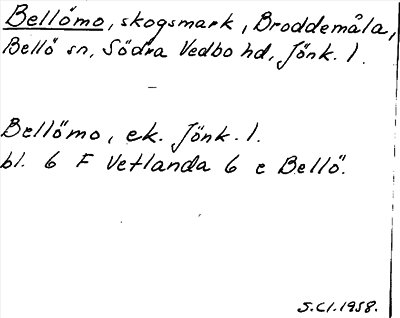 Bellömo, skogsmark, Broddemåla,
Bellö sn, Södra Vedbo hd, Jönk. l.
Bellömo, ek. Jönk. l.
bl. 6 F Vetlanda 6 e Bellö.
S.Cl. 1958.